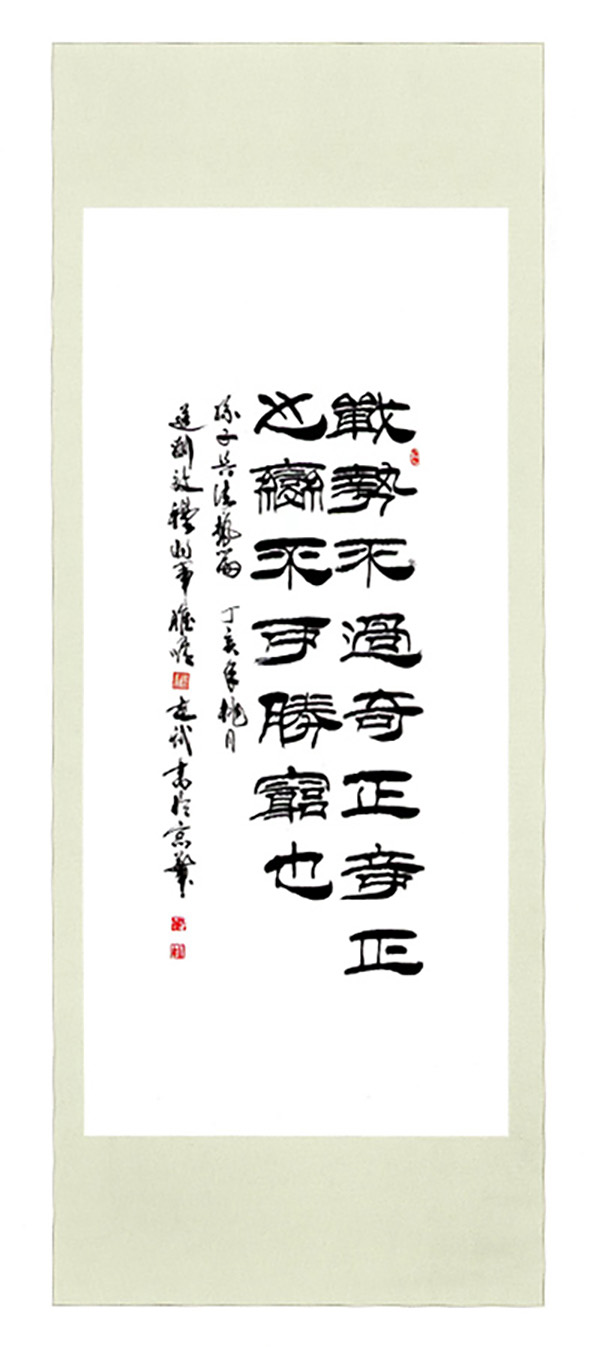 戰勢不過奇正奇正
之變不可勝窮也
孫子兵法勢篇 丁亥年桃月
劉效禮將軍雅嘱 書於京華